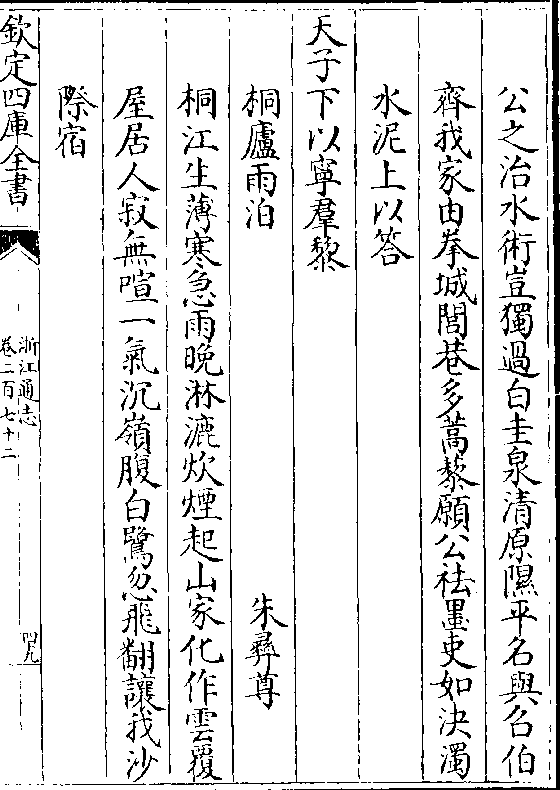 公之治水術豈獨過白圭泉清原隰平名與召伯
齊我家由拳城閭巷多蒿藜願公祛墨吏如決濁
水泥上以答
天子下以寧羣黎
桐廬雨泊　朱彝尊
桐江生薄寒急雨晚淋漉炊煙起山家化作雲覆
屋居人寂無喧一氣沉嶺腹白鷺忽飛翻讓我沙
際宿
欽定四庫全書
浙江通志
卷二百七十二
四九